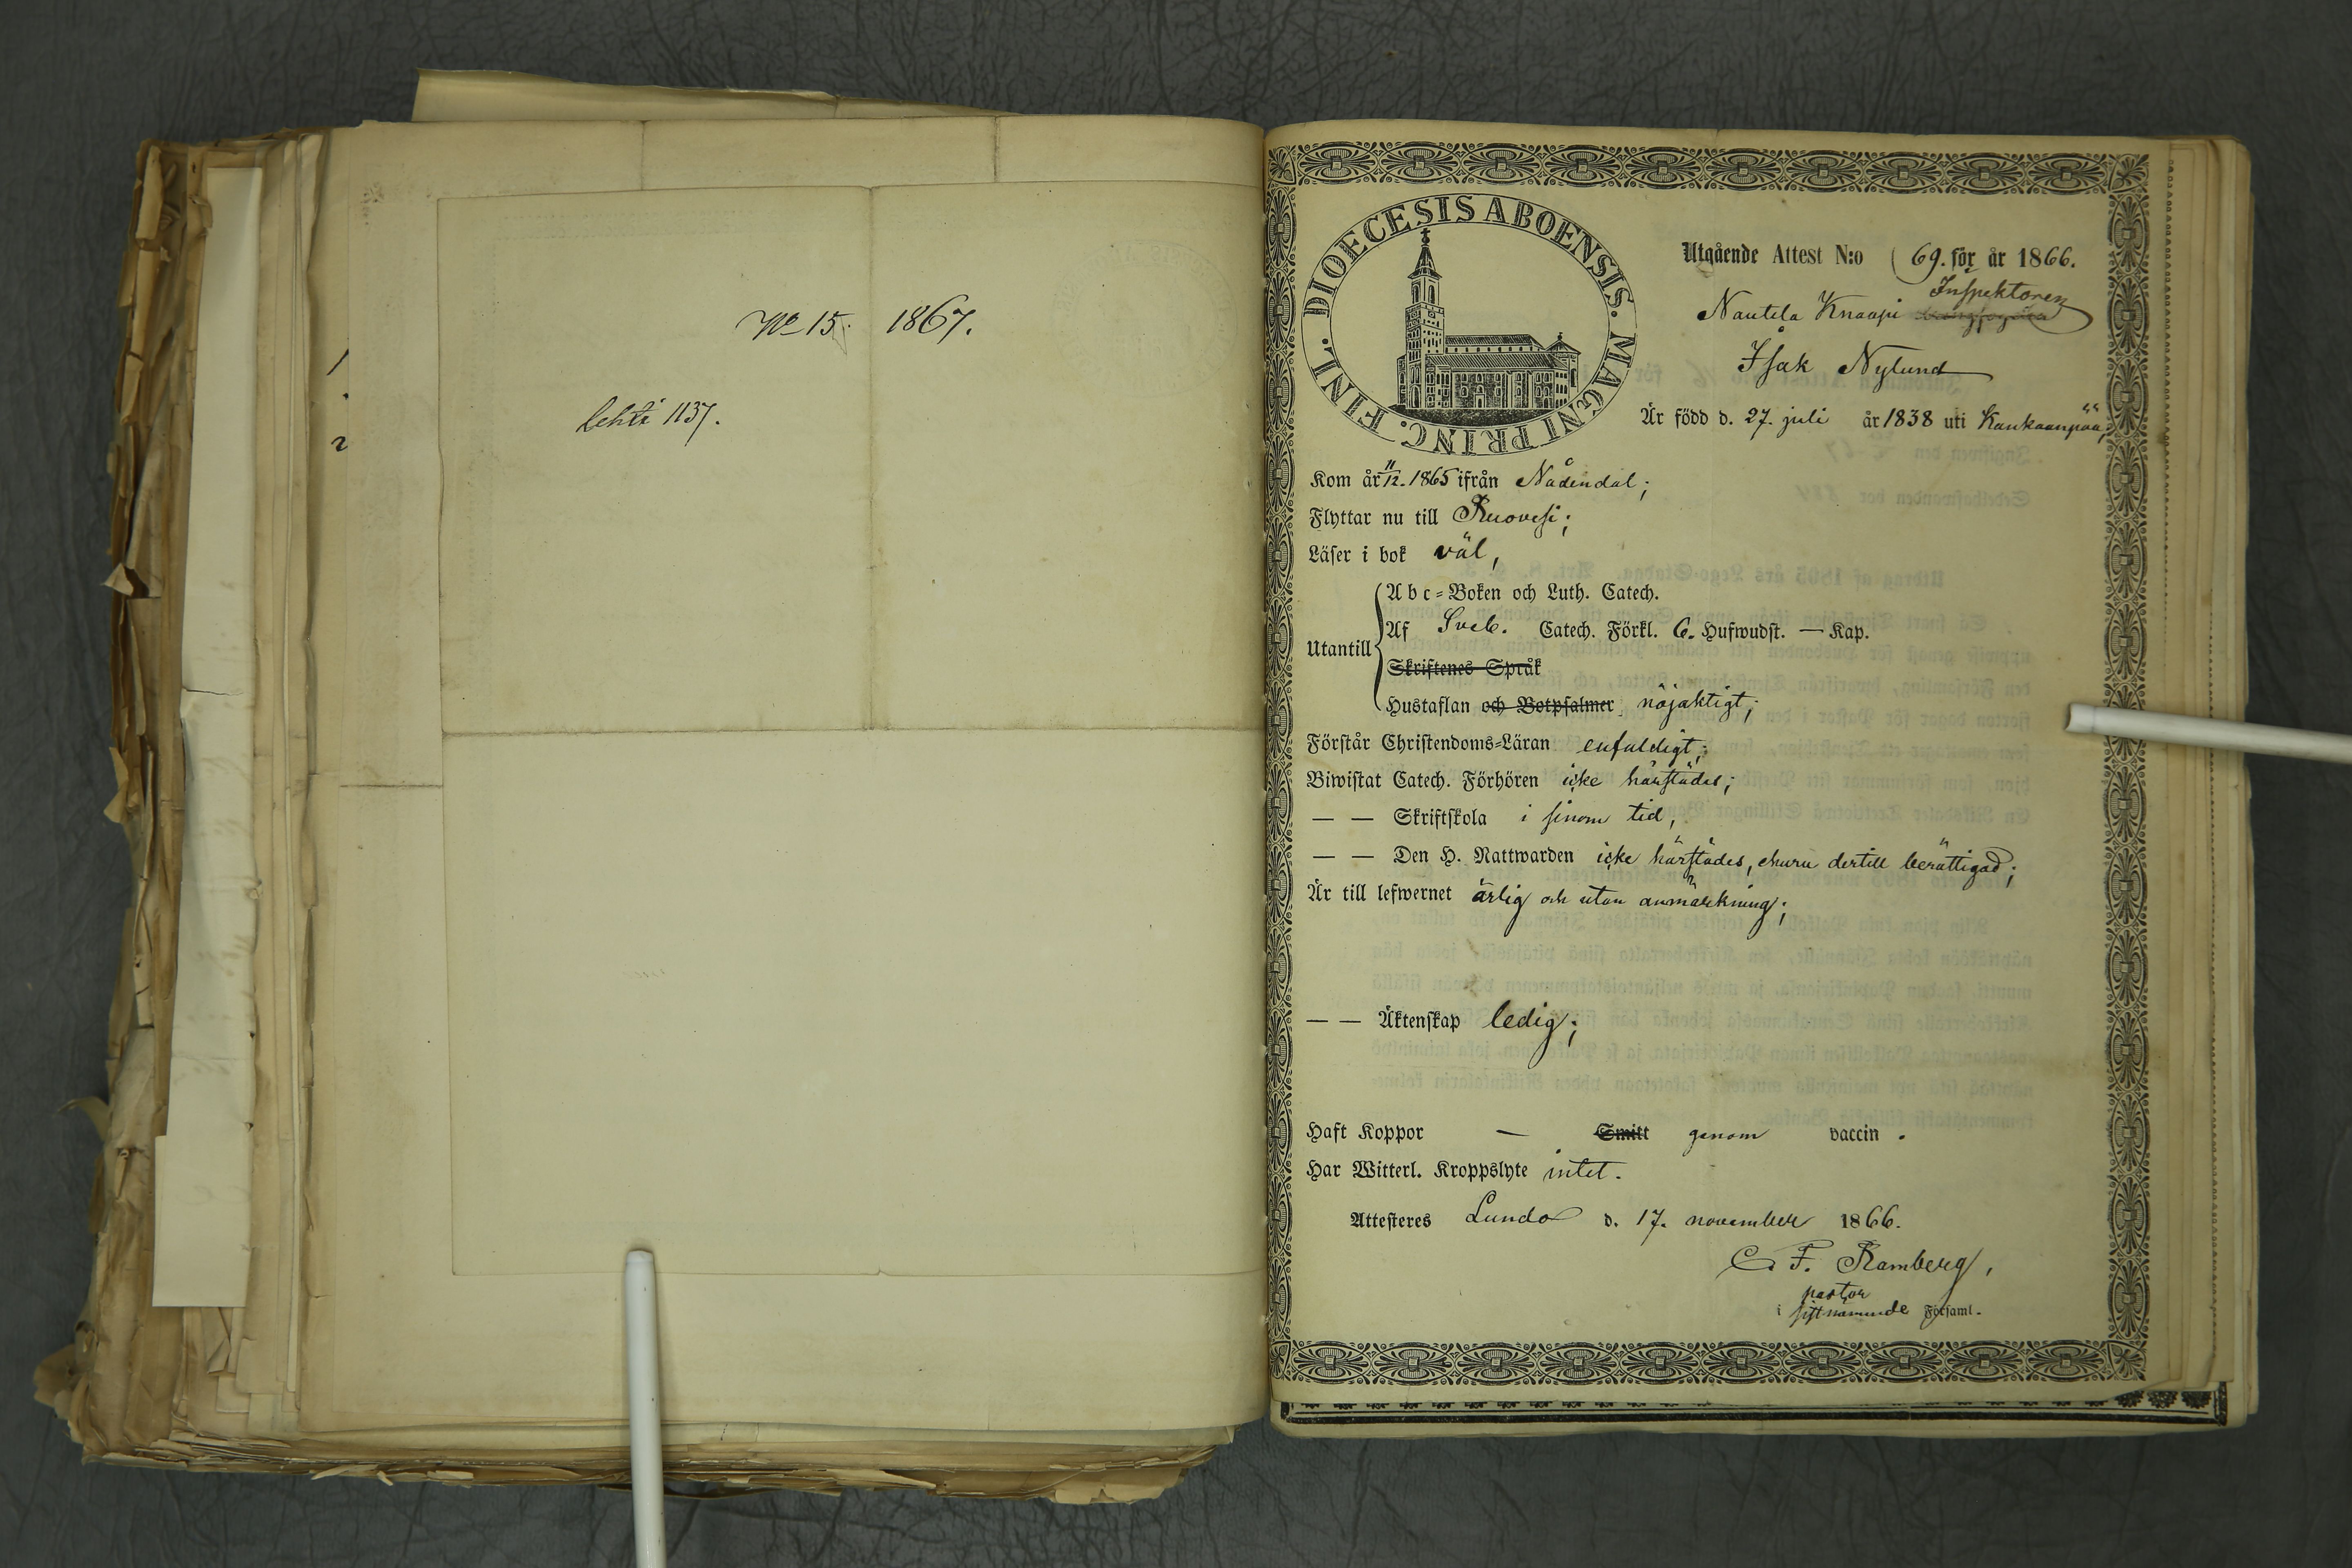 No 15. 1867.
lehti 1137.
DIOECESIS ABOENSIS. MAGNI PRINC. FINL.
Utgående Attest N:o 69. för år 1866.
Inspektoren
Nautela Knaapi
Isak Nylund
Är född d. 27. juli år 1838 uti Kankaanpää,
Kom år 11/12. 1865 ifrån Nådendal;
Flyttar nu till Ruovesi;
Läser i bok väl,
Utantill
Abc-Boken och Luth. Catech.
Af Sveb. Catech. Förkl. 6. Hufwudst. — Kap.
Skriftenes Språk
Hustaflan och Botpsalmer nöjaktigt;
Förstår Christendoms-Läran enfaldigt;
Biwistat Catech. Förhören icke härstädes;
— — Skriftskola i sinom tid,
— — Den H. Nattwarden icke härstädes, ehuru dertill berättigad;
Är till lefwernet ärlig och utan anmärkning;
— — Äktenskap ledig;
Haft Koppor — Smitt genom vaccin.
Har Witterl. Kroppslyte intet.
Attesteres Lundo d. 17. november 1866.
C. F. Ramberg,
pastor
i sistnämnde Församl.